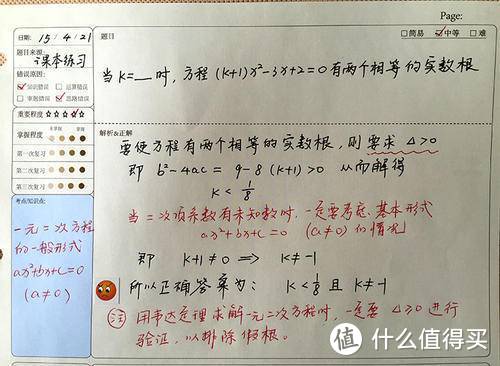 Page:
日期: 15 / 4 / 21
题目
□简易 ☑中等 □难
题目来源:
课本练习
错误原因:
☑知识错误 □运算错误
□审题错误 ☑思路错误
重要程度 ☆☆☆☆☆
掌握程度
第一次复习
第二次复习
第三次复习
当 K=__时, 方程 (K+1)x²-3x+2=0 有两个相等的实数根
解析&正解
要使方程有两个相等的实数根, 则要求 △>0
即 b²-4ac = 9-8(K+1)>0 从而解得
K < 1/8
当二次项系数有未知数时, 一定要考虑基本形式
ax²+bx+c=0 (a≠0) 的情况
即 K+1≠0 ⟹ K≠-1
所以正确答案为: K<1/8 且 K≠-1
注 用韦达定理求解一元二次方程时, 一定要 △≥0 进行
验证, 以排除假根。
考点/知识点:
一元二次方程
的一般形式
ax²+bx+c=0
(a≠0)
值 什么值得买